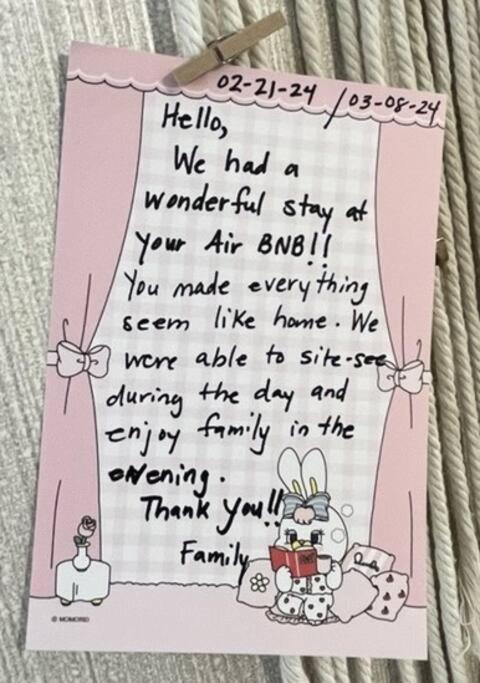 02-21-24 / 03-08-24
Hello,
We had a
wonderful stay at
your Air BNB!!
You made everything
seem like home. We
were able to site-see
during the day and
enjoy family in the
evening.
Thank You!!
Family
© MOMOIRO